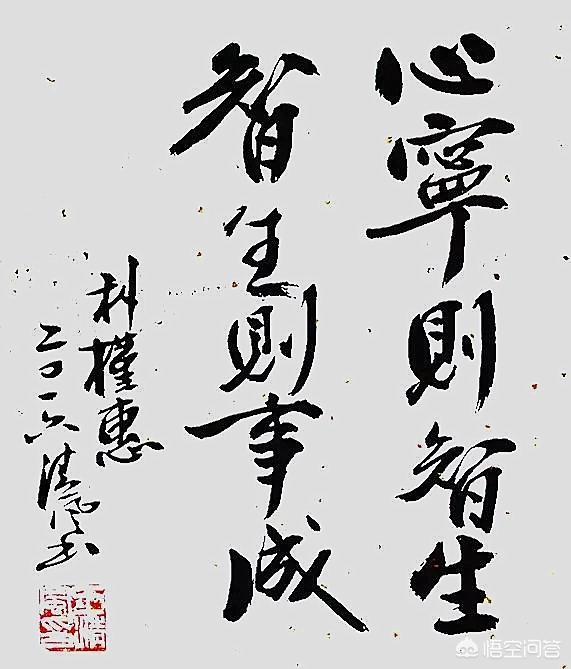 心寧則智生
智生則事成
朴槿惠
二〇一六清風书
悟空问答